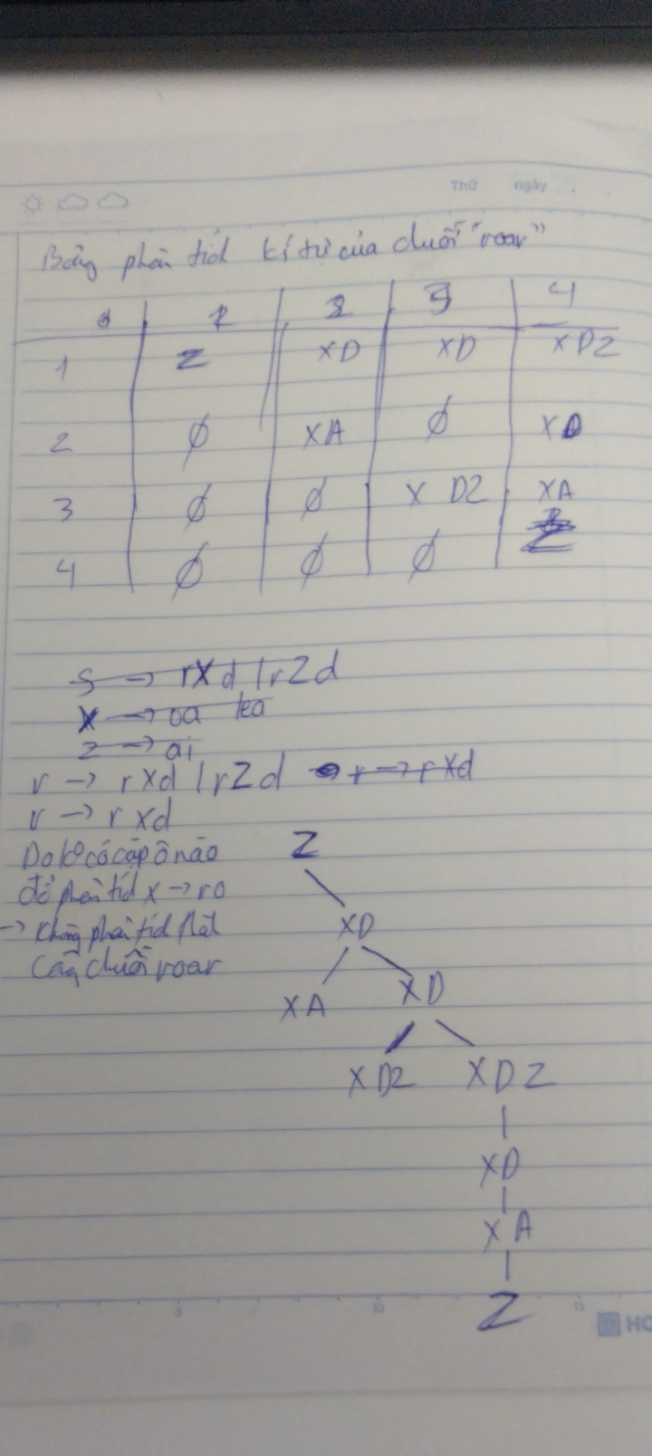 Thứ ngày
Bảng phân tích kí tự của chuỗi "roar"
0 1 2 3 4
1 Z XD XD XDZ
2 ∅ XA ∅ XD
3 ∅ ∅ X DZ XA
4 ∅ ∅ ∅ Z
S → rXd | rZd
X → oa | ea
Z → ai
r → rXd | rZd r → rXd
r → rXd
Do ko có cặp ô nào
để phân tích X → ro
→ Không phân tích
cây chuỗi roar
Z
XD
XA XD
XDZ XDZ
XD
XA
Z
5 10 15
HO